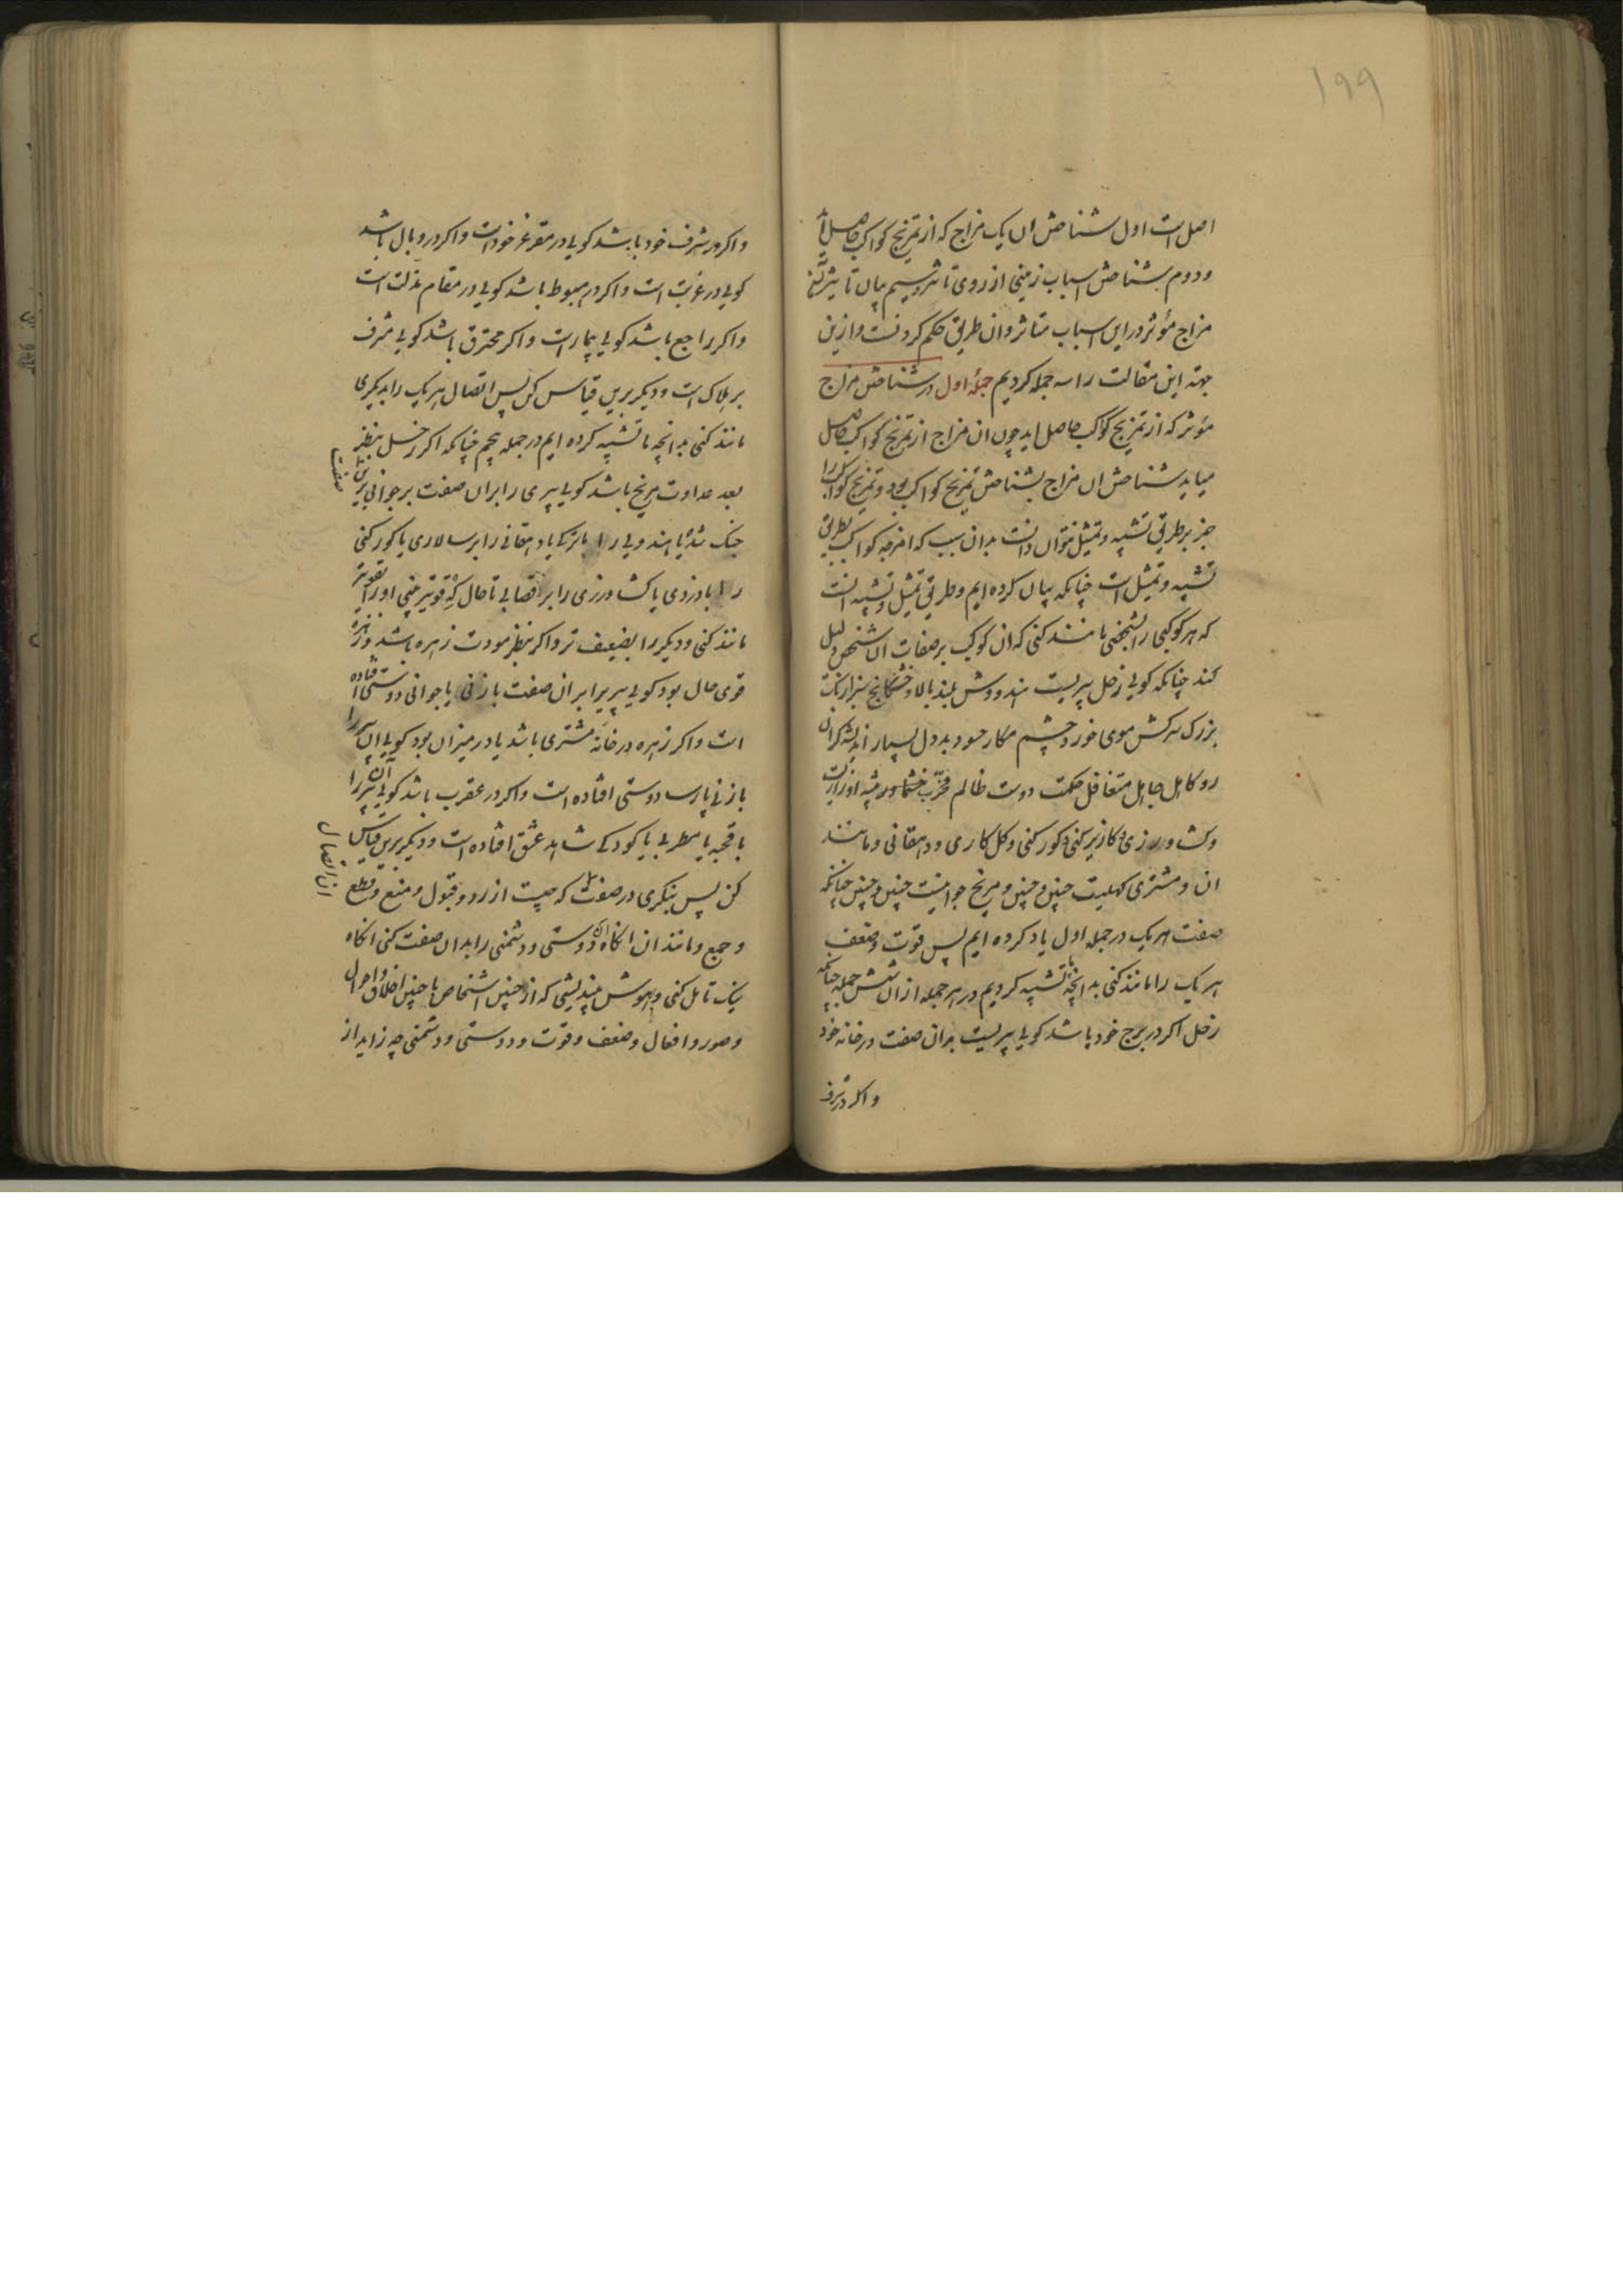 ۱۹۹
اصل است اول شناختن ان یک مزاج که از تمزیج کواکب حاصل آید
ودوم بشناختن اسباب زمینی از روی تاثر وسیم بیان تاثیر
مزاج مؤثر در این اسباب متاثر وان طریق حکم کردنست وازین
جهة این مقالت را سه جمله کردیم جملهٔ اول در شناختن مزاج
مؤثر که از تمزیج کواکب حاصل اید چون ان مزاج از تمزیج کواکب حاصل
میاید شناختن ان مزاج بشناختن تمزیج کواکب بود وتمزیج کواکب را
جز بر طریق تشبیه وتمثیل نتوان دانست بدان سبب که امزجه کواکب بطریق
تشبیه وتمثیل است چنانکه بیان کرده ایم وطریق تمثیل وتشبیه انست
که هر کوکبی را بشخصی مانند کنی که ان کوکب بر صفات ان شخص دلیل
کند چنانکه کویی زحل پیریست هندووش بلند بالا وخشکانج سبزارنک
بزرک سر کش موی خورد چشم مکار حسود بددل بسیار اندیشه کران
رو کاهل جاهل متغافل حکمت دوست ظالم مخرب خشم اور پیشه او
وکشاورزی وکاریز کنی وکور کنی وکل کاری ودهقانی ومانند
ان ومشتری کهلیست چنین وچنین ومریخ جوانیست چنین وچنین چنانکه
صفت هر یک در جمله اول یاد کرده ایم پس قوت وضعف
هر یک را مانند کنی بدانچه ما تشبیه کردیم در هر جمله از ان شش جمله چنانکه
زحل اکر در برج خود باشد کویی پیریست بدان صفت در خانه خود
واکر در شرف
واکر در شرف خود باشد کویی در مقر عز خود است واکر در وبال باشد
کویی در غربت است واکر در هبوط باشد کویی در مقام مذلت است
واکر راجع باشد کویی بیمار است واکر محترق باشد کویی مشرف
بر هلاک است ودیکر برین قیاس کن پس اتصال هر یک را بدیکری
مانند کنی بدانچه ما تشبیه کرده ایم در جمله پنجم چنانکه اکر زحل بنظر
بعد عداوت مریخ باشد کویی پیری را بران صفت بر جوانی برین
صفت
جنک شد یا هندویی را با ترکی یا دهقانی را بر سالاری یا کور کنی
را با دزدی یا کشاورزی را بر قصابی تا حال که قویتر بینی او را بقویتر
مانند کنی ودیکر را بضعیف تر واکر بنظر مودت زهره باشد وزهره
قوی حال بود کویی پیریرا بران صفت با زنی یا جوانی دوستی افتاده
است واکر زهره در خانه مشتری باشد یا در میزان بود کویی ان پیر را
با زنی پارسا دوستی افتاده است واکر در عقرب باشد کویی آن پیر را
با قحبه یا مطربی یا کودکی شاهد عشق افتاده است ودیکر برین قیاس
کن پس بنکری در صفت که چیست از رد وقبول ومنع وقطع
ان اتصال
وجمع ومانند ان انکاه ان دوستی ودشمنی را بدان صفت کنی انکاه
نیک تامل کنی وبهوش بیندیشی که از چنین اشخاص با چنین اخلاق واحوال
وصور وافعال وضعف وقوت ودوستی ودشمنی چه زاید از